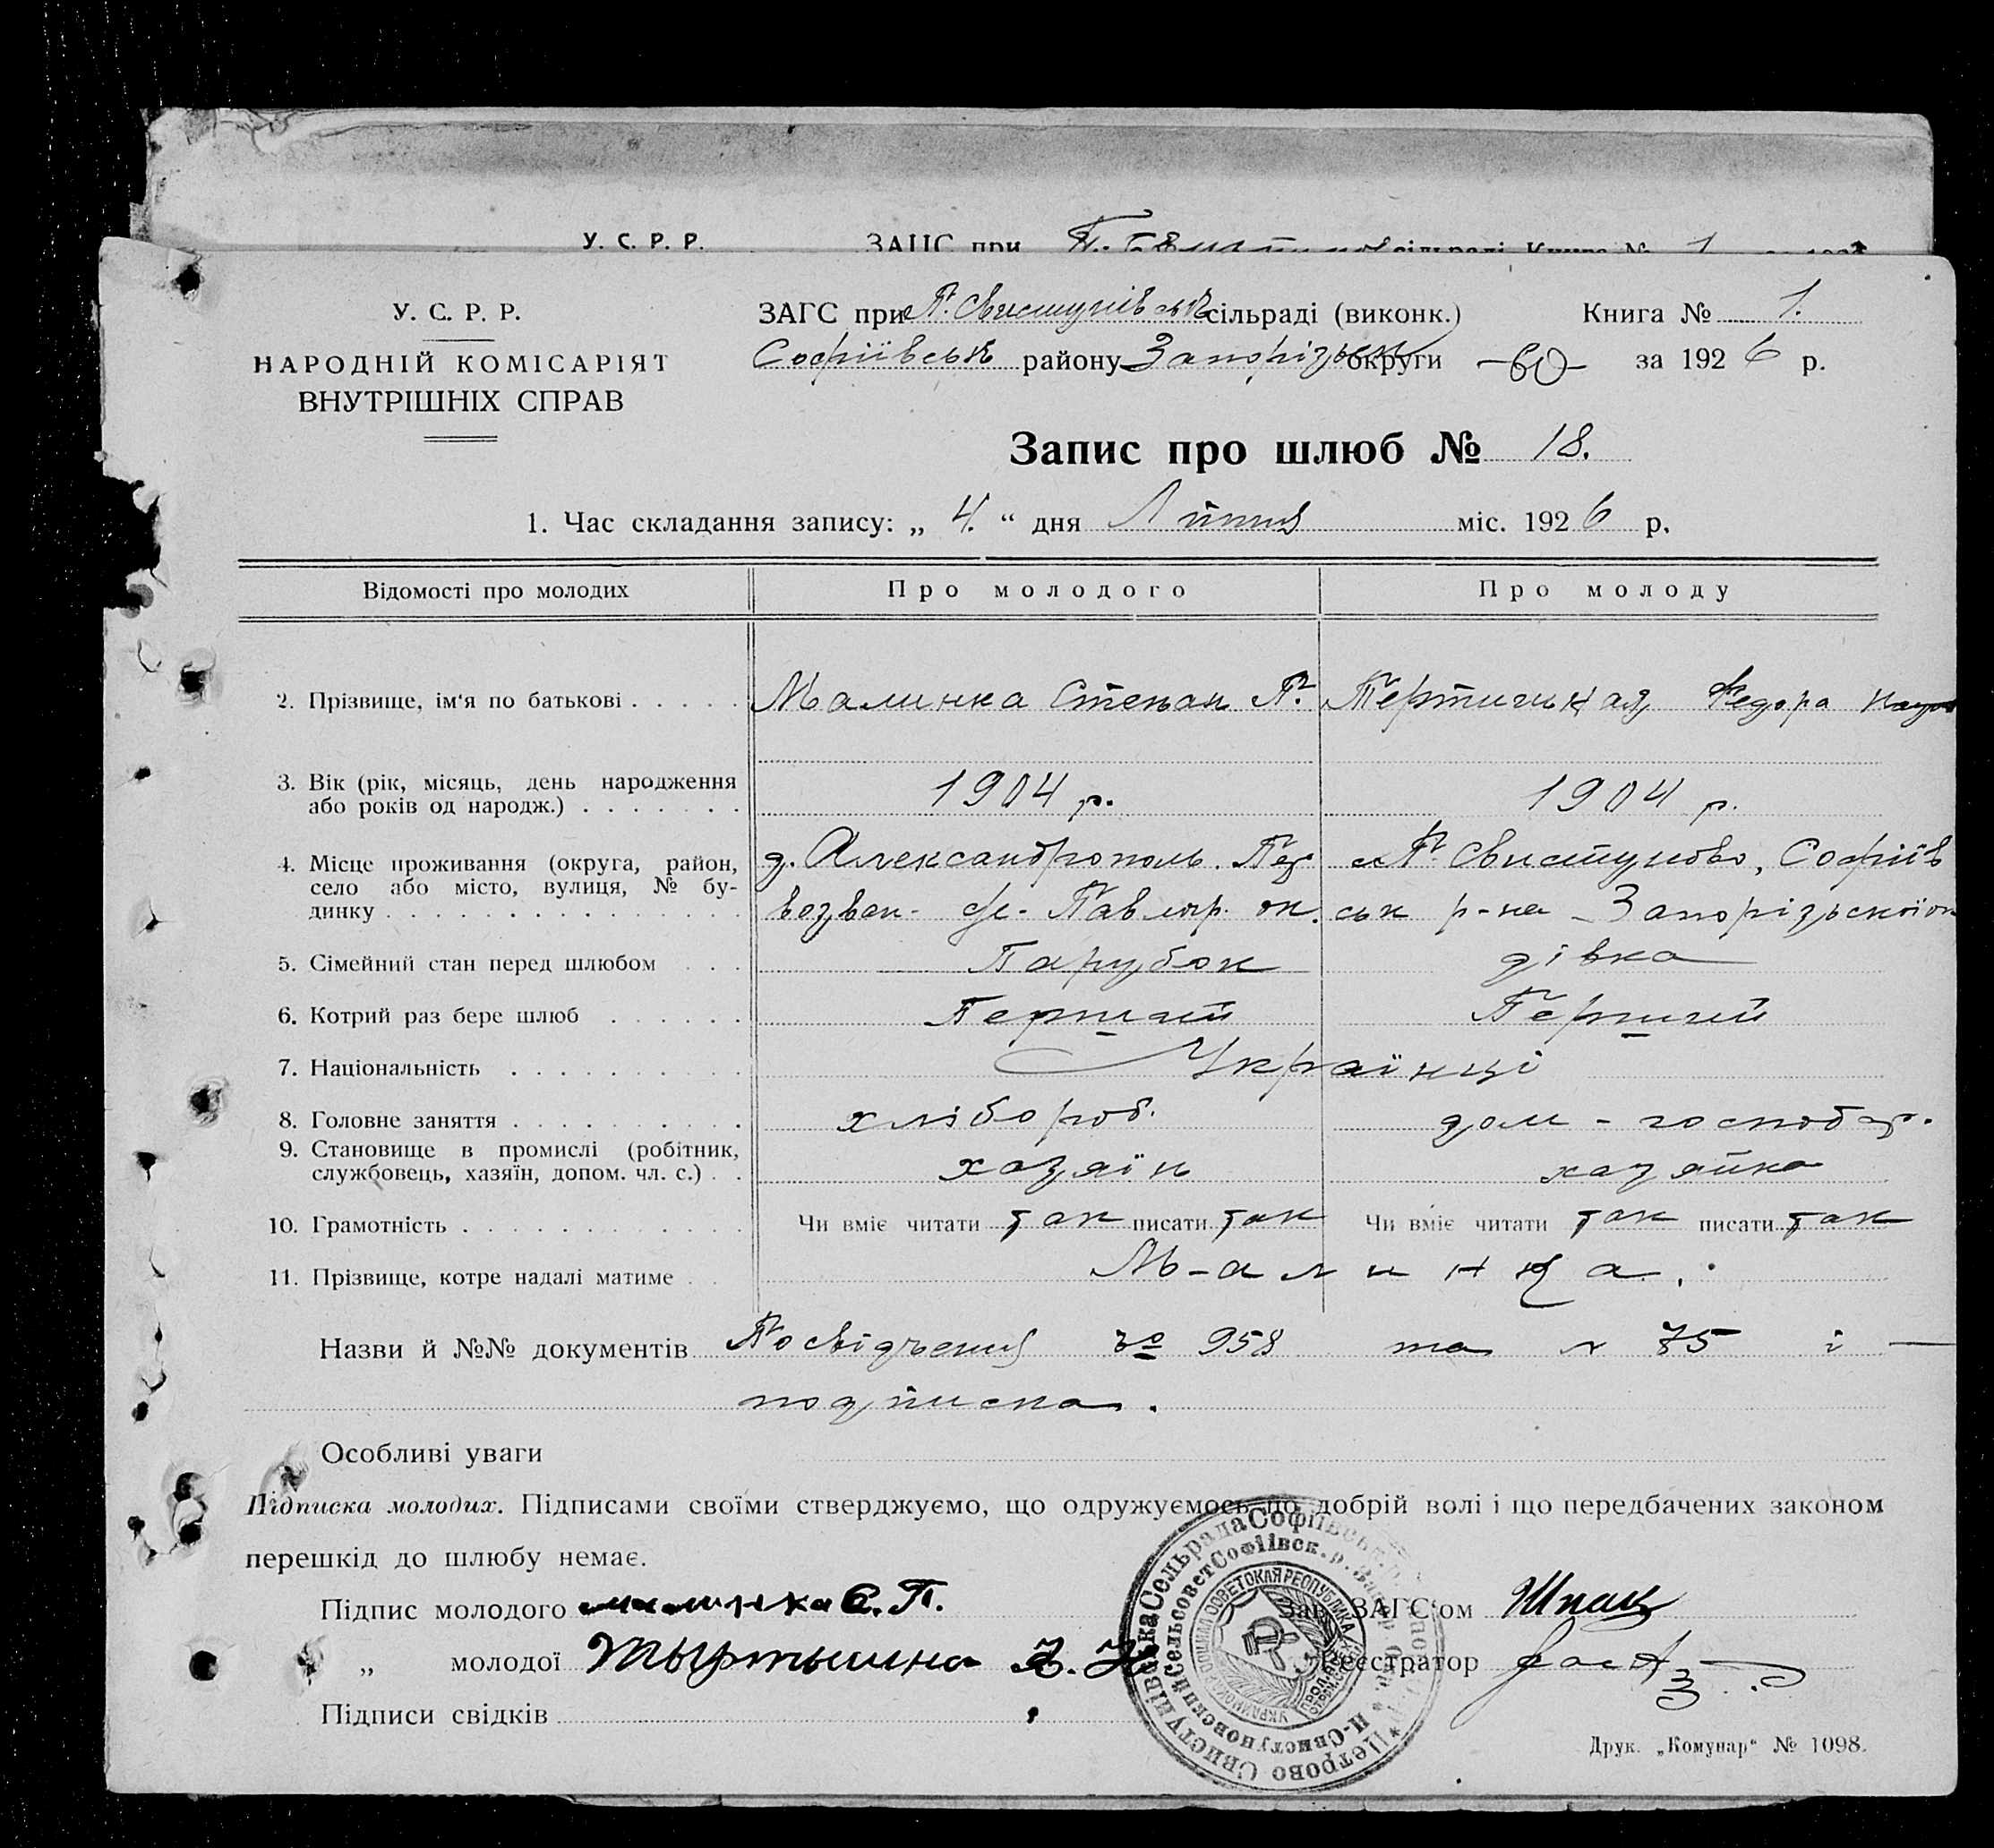 У. С. Р. Р. ЗАГС при П. Свистунівськ сільраді Книга № 1
У. С. Р. Р.
НАРОДНІЙ КОМІСАРІЯТ
ВНУТРІШНІХ СПРАВ
ЗАГС при П. Свистунівськ сільраді (виконк.) Книга № 1.
Софіївськ району Запорізьк округи за 1926 р.
Запис про шлюб № 18.
1. Час складання запису: „ 4. “ дня Липня міс. 1926 р.
Відомості про молодих Про молодого Про молоду
2. Прізвище, ім‘я по батькові Малинка Степан П. Федора
3. Вік (рік, місяць, день народження
або років од народж.) 1904 р. 1904 р.
4. Місце проживання (округа, район, д. Александрополь. П. Свистуново, Софіїв
село або місто, вулиця, № бу-
динку возван. Павлогр. ок. ськ р-на Запорізьскої ок
5. Сімейний стан перед шлюбом Парубок дівка
6. Котрий раз бере шлюб Перший Перший
7. Національність Українці
8. Головне заняття хлібороб. дом - господар.
9. Становище в промислі (робітник,
службовець, хазяїн, допом. чл. с.) хазяїн хазяйка
10. Грамотність Чи вміє читати так писати так Чи вміє читати так писати так
11. Прізвище, котре надалі матиме Малинка.
Назви й №№ документів Посвідчення № 958 та № 75 і
подписка.
Особливі уваги
Підписка молодих. Підписами своїми стверджуємо, що одружуємось по добрій волі і що передбачених законом
перешкід до шлюбу немає.
Підпис молодого малинка С. П. Зав. ЗАГС‘ом
„ молодої Реєстратор
Підписи свідків
Петрово Свистунівська Сельрада Софіївськ.
П-Свистуновский Сельсовет Софіівск. р.
Друк. „Комунар“ № 1098.